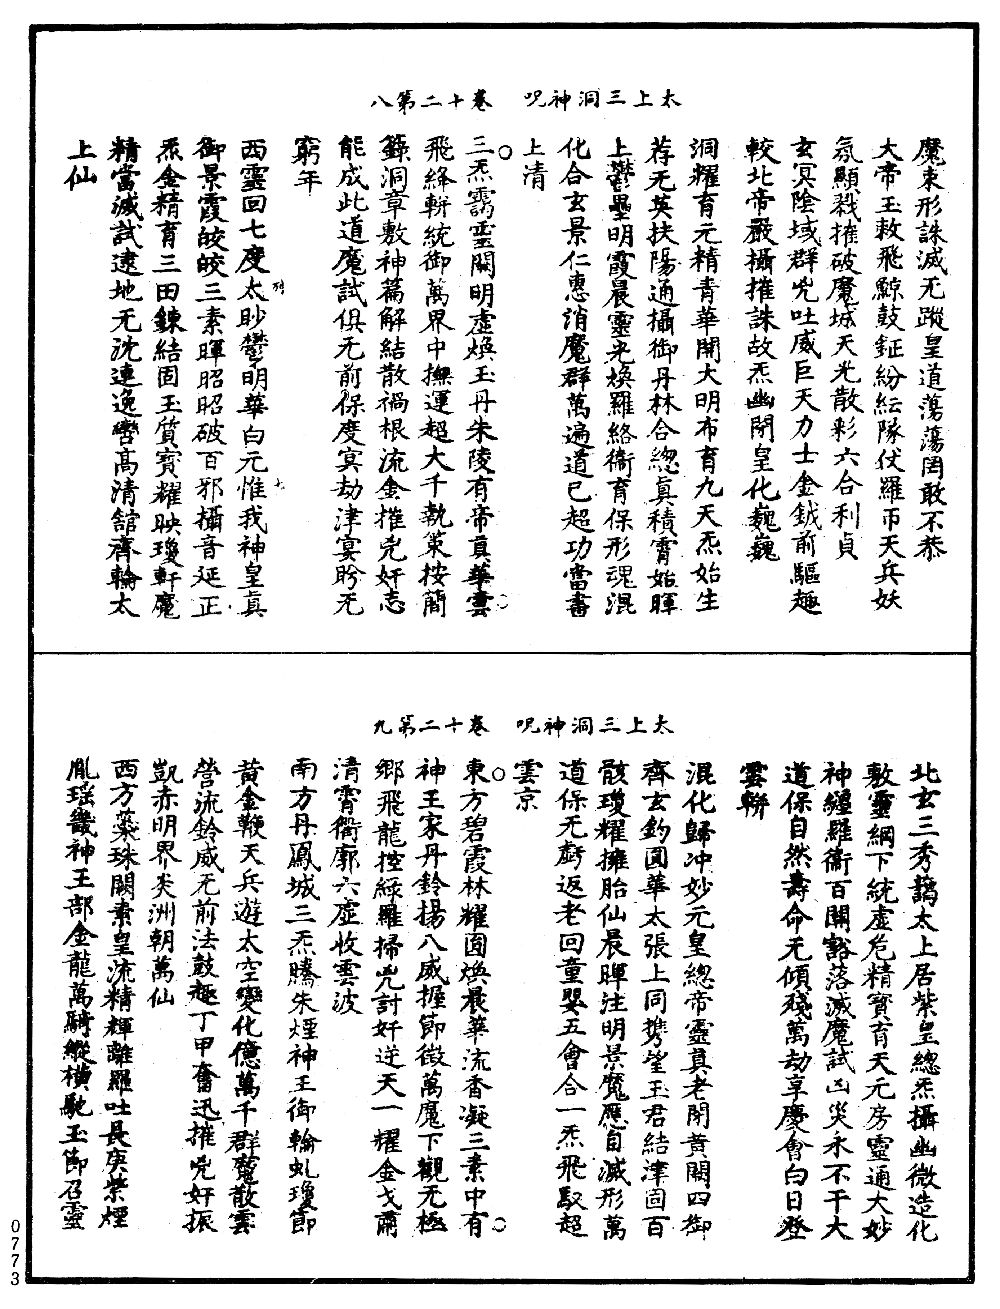 太上三洞神呪　卷十二第八
魔束形誅滅无蹤皇道蕩蕩罔敢不恭
大帝玉敕飛鯨鼓鉦紛紜隊伏羅帀天兵妖
氛顯戮摧破魔城天光散彩六合利貞
玄冥陰域群兇吐威巨天力士金鉞前驅趣
較北帝嚴攝摧誅故炁幽閉皇化巍巍
洞耀育元精青華開大明布育九天炁始生
荐无英扶陽通攝御丹林合總真積霄始暉
上鬱壘明霞晨靈光煥羅絡衛育保形魂混
化合玄景仁惠消魔群萬遍道已超功當書
上清
三炁靄靈關明虛煥玉丹朱陵有帝真華雲
飛絳軿統御萬界中撫運超大千執策按簡
籙洞章敷神篇解結散禍根流金摧兇奸志
能成此道魔試俱无前保度冥劫津冥盻无
窮年
西靈回七度太眇鬱明華白元惟我神皇真
御景霞皎皎三素暉昭昭破百邪攝音延正
炁金精育三田鍊結固玉質寶耀映瓊軒魔
精當滅試逮地无沈連逸轡高清舘齊輪太
上仙
太上三洞神呪　卷十二第九
北玄三秀謁太上居紫皇總炁攝幽微造化
敷靈綱下統虛危精寶育天元房靈通大妙
神纏羅衛百關豁落滅魔試凶災永不干大
道保自然壽命无傾殘萬劫享慶會白日登
雲軿
混化歸冲妙元皇總帝靈真老閉黄關四御
齊玄鈞圓華太張上同携望玉君結津固百
骸瓊耀擁胎仙晨暉注明景魔應自滅形萬
道保无虧返老回童嬰五會合一炁飛馭超
雲京
東方碧霞林耀圎煥晨華流香凝三素中有
神王家丹鈴揚八威握節徵萬魔下觀无極
鄉飛龍控綠羅掃兇討奸逆天一耀金戈肅
清霄衢廓六虛收雲波
南方丹鳳城三炁騰朱煙神王御輪虬瓊節
黄金鞭天兵遊太空變化億萬千群魔散雲
營流鈴威无前法鼓趣丁甲奮迅摧兇奸振
凱赤明界炎洲朝萬仙
西方蘂珠闕素皇流精輝離羅吐長庚紫煙
胤瑶畿神王部金龍萬騎縱橫馳玉節召靈
0773